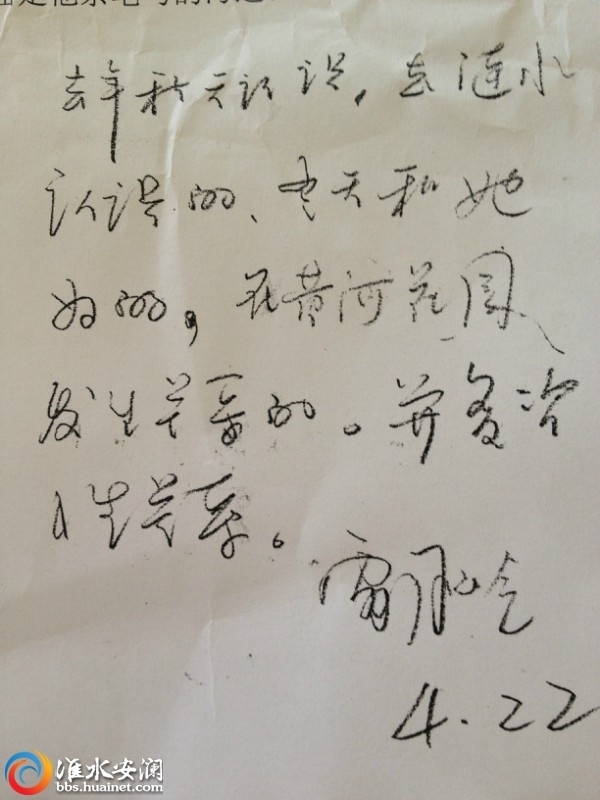 去年秋天认识，去涟水
认识的、冬天和她
好的，在黄河花园
发生关系的。并多次
性关系。
4.22
淮水安澜
bbs.huainet.com